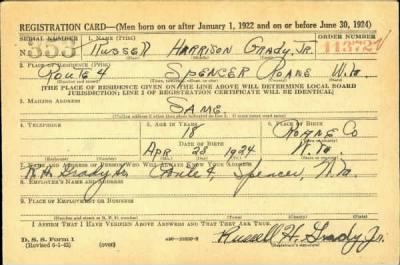 REGISTRATION CARD—(Men born on or after January 1, 1922 and on or before June 30, 1924)
SERIAL NUMBER 1. NAME (Print) ORDER NUMBER
N. 353 Russell Harrison Grady, Jr. 11372
2. PLACE OF RESIDENCE (Print)
Route 4 Spencer Roane W. Va
[THE PLACE OF RESIDENCE GIVEN ON THE LINE ABOVE WILL DETERMINE LOCAL BOARD
JURISDICTION; LINE 2 OF REGISTRATION CERTIFICATE WILL BE IDENTICAL]
3. MAILING ADDRESS
Same
4. TELEPHONE 5. AGE IN YEARS 6. PLACE OF BIRTH
18 Roane Co
DATE OF BIRTH
Apr 28 1924 W. Va
7. NAME AND ADDRESS OF PERSON WHO WILL ALWAYS KNOW YOUR ADDRESS
R. H. Grady Route 4, Spencer, W. Va.
8. EMPLOYER'S NAME AND ADDRESS
9. PLACE OF EMPLOYMENT OR BUSINESS
I AFFIRM THAT I HAVE VERIFIED ABOVE ANSWERS AND THAT THEY ARE TRUE.
D. S. S. Form 1
(over)
Russell H. Grady Jr.